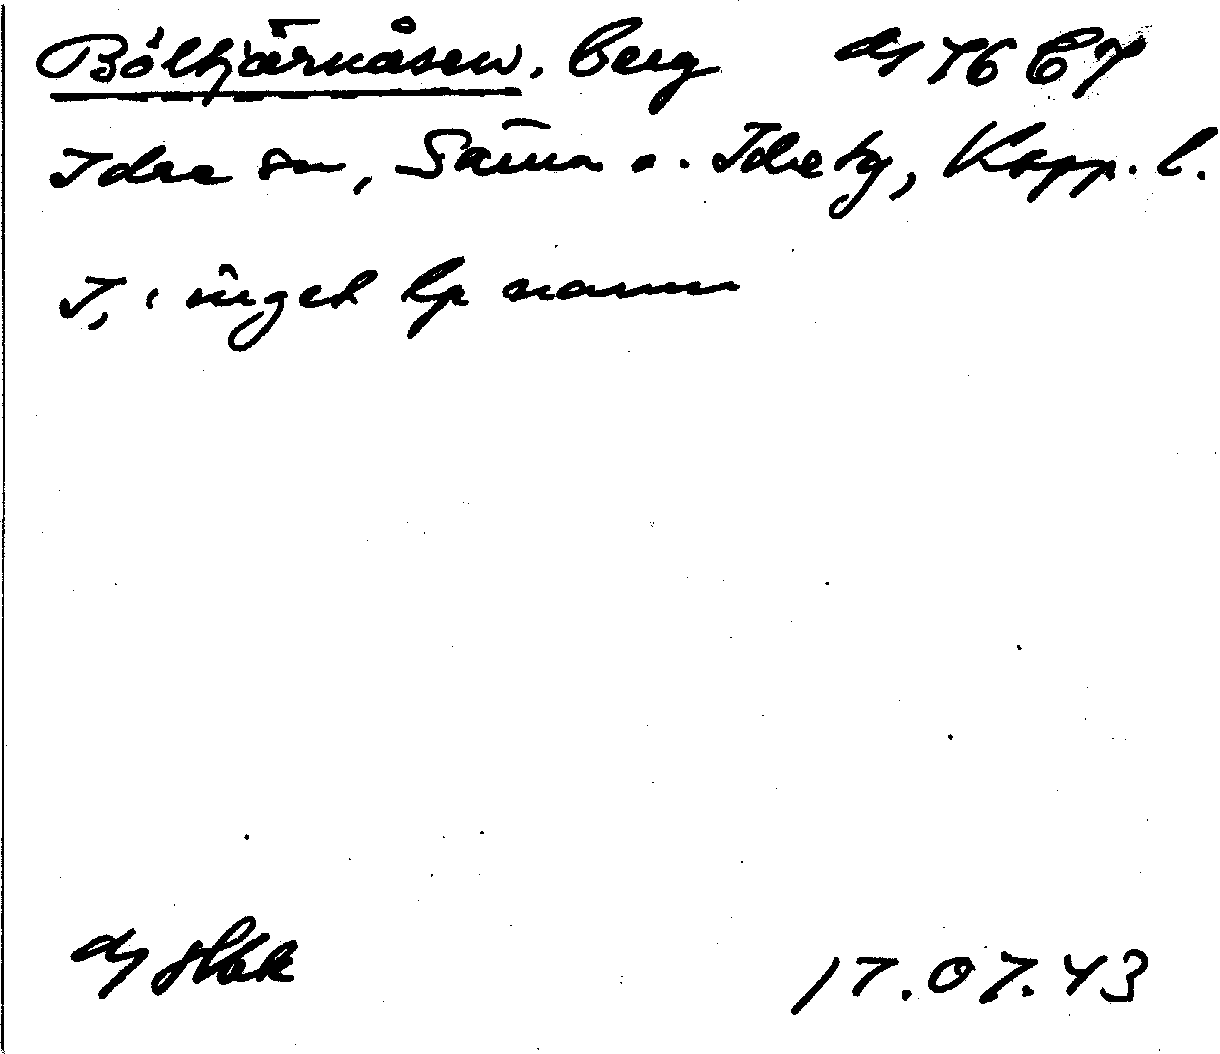 Bölhjärnåsen. berg dy 76 C7
Idre sn, Särna o. Idre tg, Kopp. l.
I, : inget lp namn
dy
17.07.43